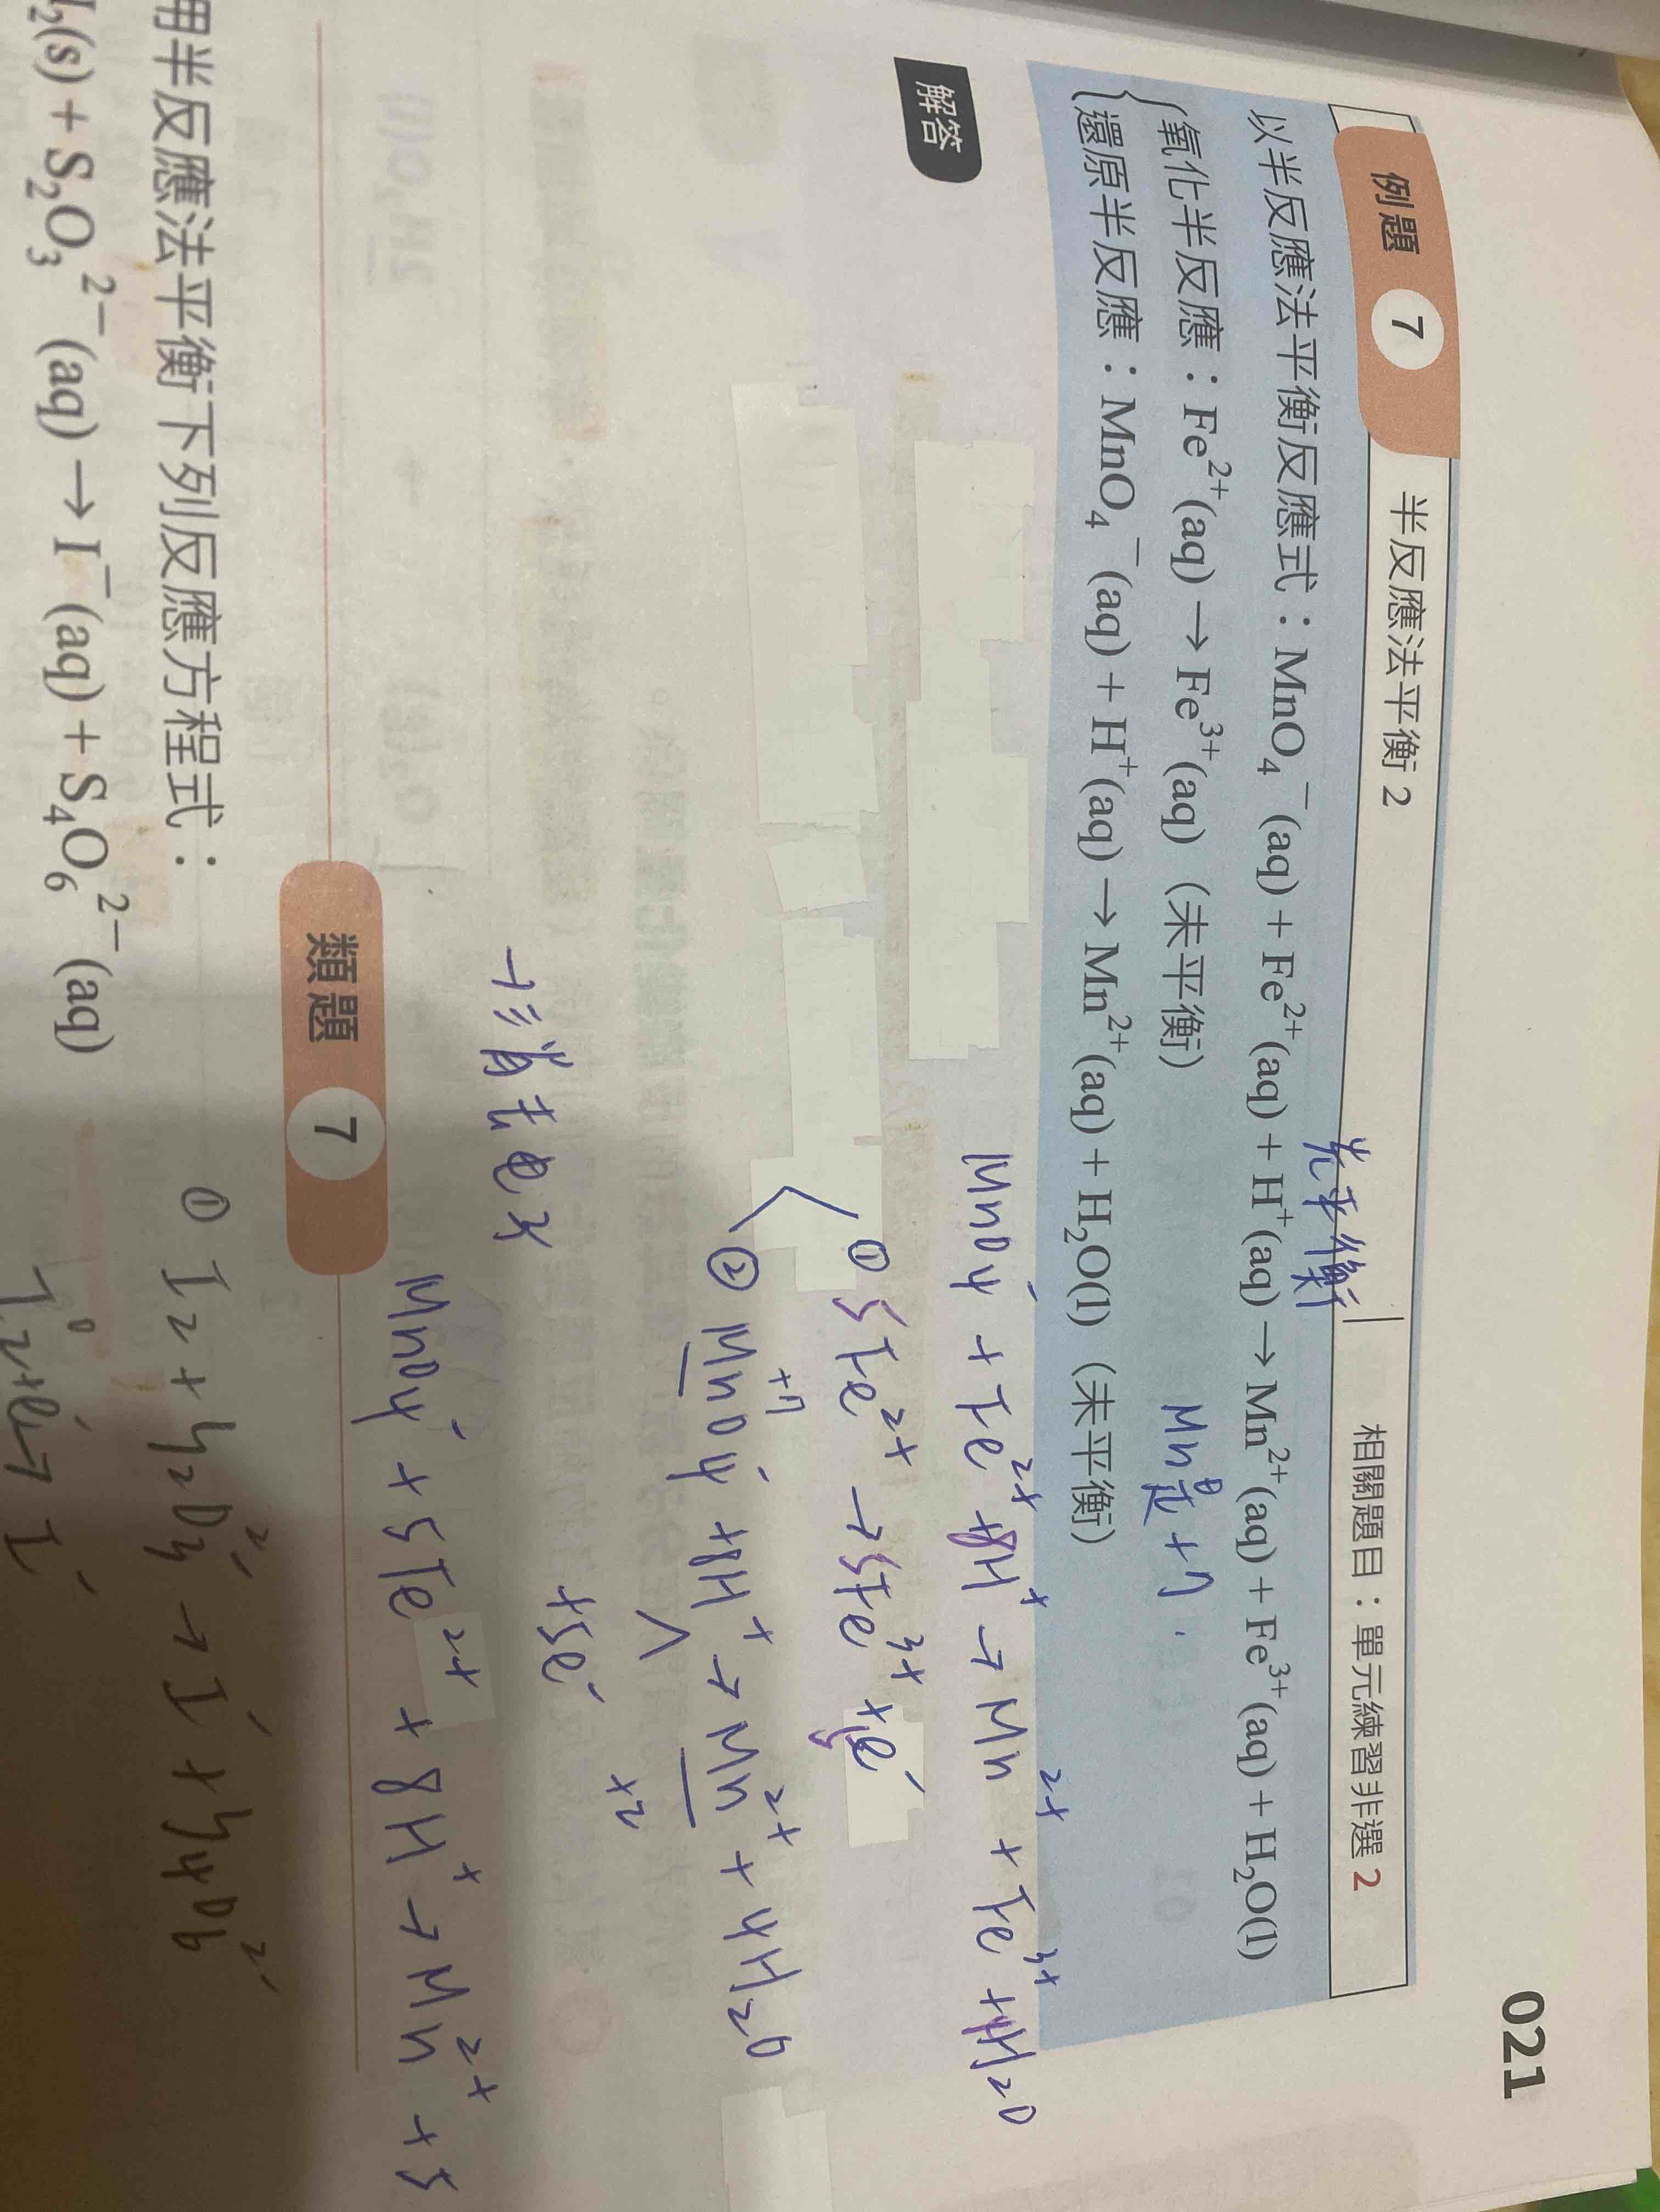 021
例題 7 半反應法平衡 2 相關題目：單元練習非選 2
先平衡
以半反應法平衡反應式：MnO₄⁻(aq) + Fe²⁺(aq) + H⁺(aq) → Mn²⁺(aq) + Fe³⁺(aq) + H₂O(l)
氧化半反應：Fe²⁺(aq) → Fe³⁺(aq)（未平衡）
Mn是+7
還原半反應：MnO₄⁻(aq) + H⁺(aq) → Mn²⁺(aq) + H₂O(l)（未平衡）
解答
MnO₄⁻ + Fe²⁺ + 8H⁺ → Mn²⁺ + Fe³⁺ + 4H₂O
① 5Fe²⁺ → 5Fe³⁺ + 5e⁻
+7
② MnO₄⁻ + 8H⁺ → Mn²⁺ + 4H₂O
2+
+5e⁻
消去電子
MnO₄⁻ + 5Fe²⁺ + 8H⁺ → Mn²⁺ + 5
類題 7
用半反應法平衡下列反應方程式：
① I₂ + S₂O₃²⁻ → I⁻ + S₄O₆²⁻
I₂(s) + S₂O₃²⁻(aq) → I⁻(aq) + S₄O₆²⁻(aq)
I₂⁰ + e⁻ → I⁻